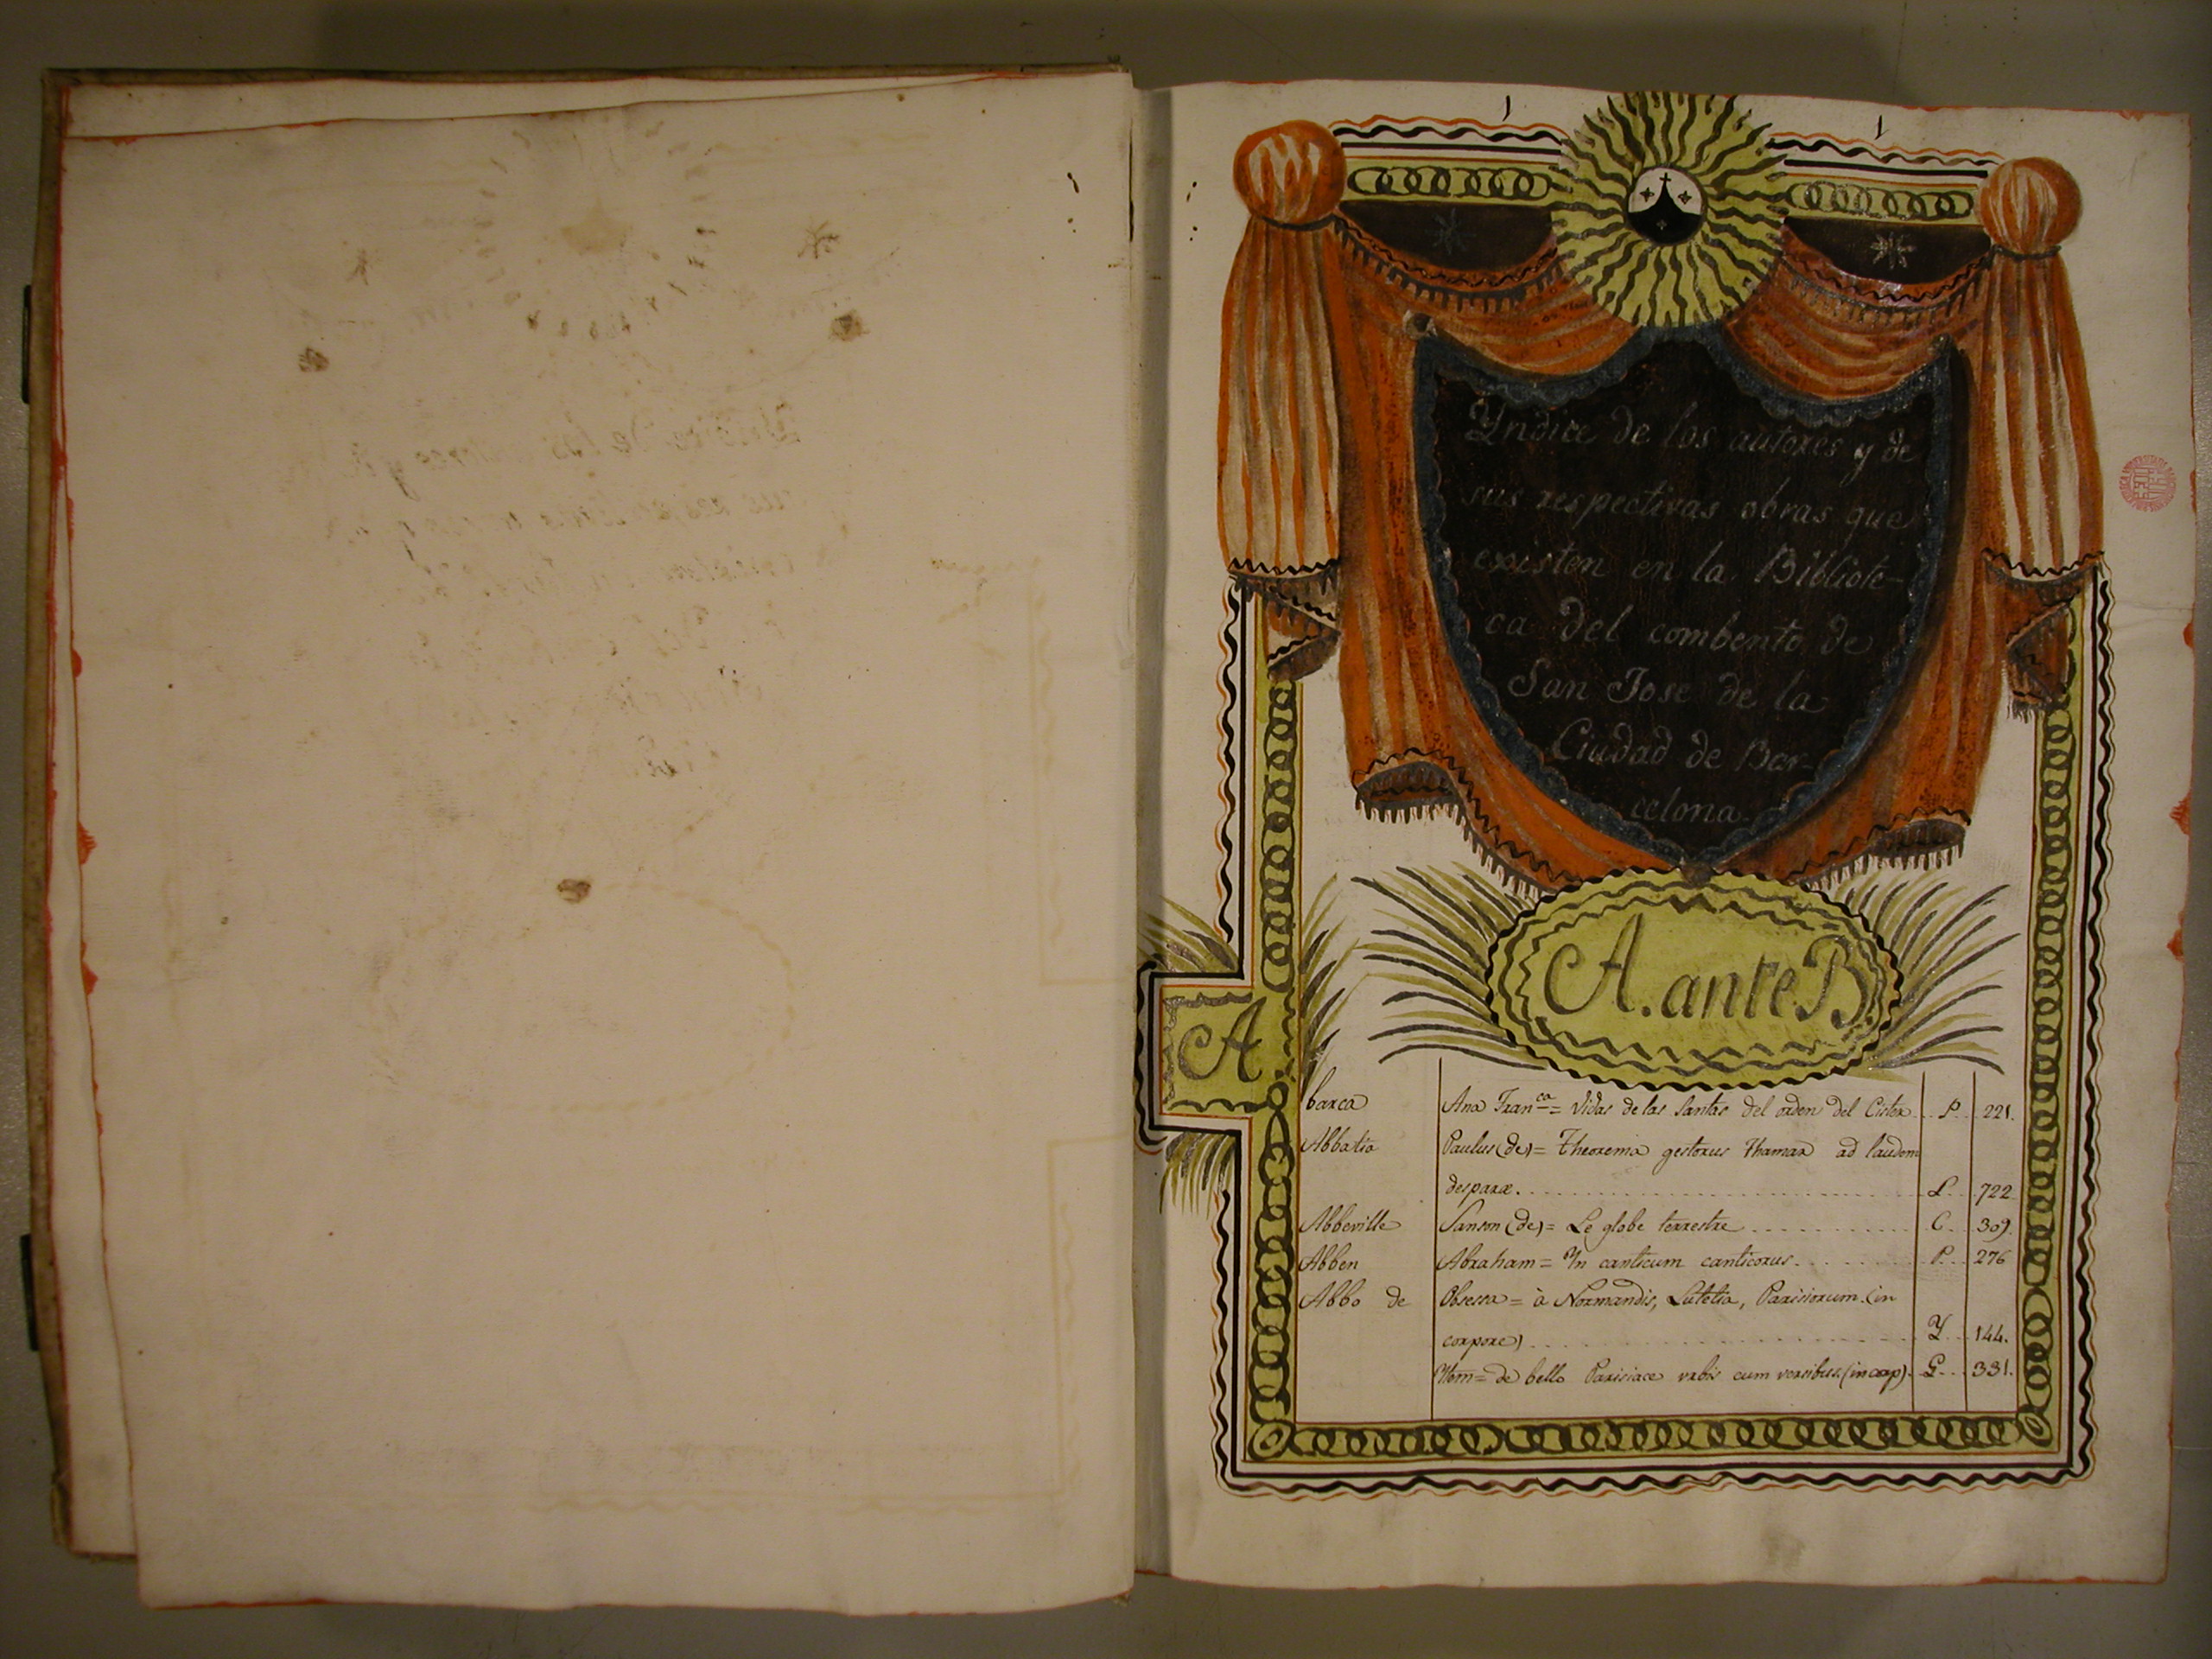 Yndice de los autores y de
sus respectivas obras que
existen en la Bibliote-
ca del combento de
San Jose de la
Ciudad de Bar-
celona.
A. ante B.
A
barca Ana Fran.ca = Vidas de las Santas del orden del Cister. P. 221.
Abbatia Paulus (de) = Theorema gestorus Thamar ad laudem
deiparæ. L. 722
Abbeville Sanson (de) = Le globe terrestre C. 309.
Abben Abraham = Yn canticum canticorus. P. 276
Abbo de Obsessa = à Normandis, Lutetia, Parisiorum. (in
corpore) Y. 144.
Ytem = de bello Parisiace urbis cum versibus. (in corp). G. 331.